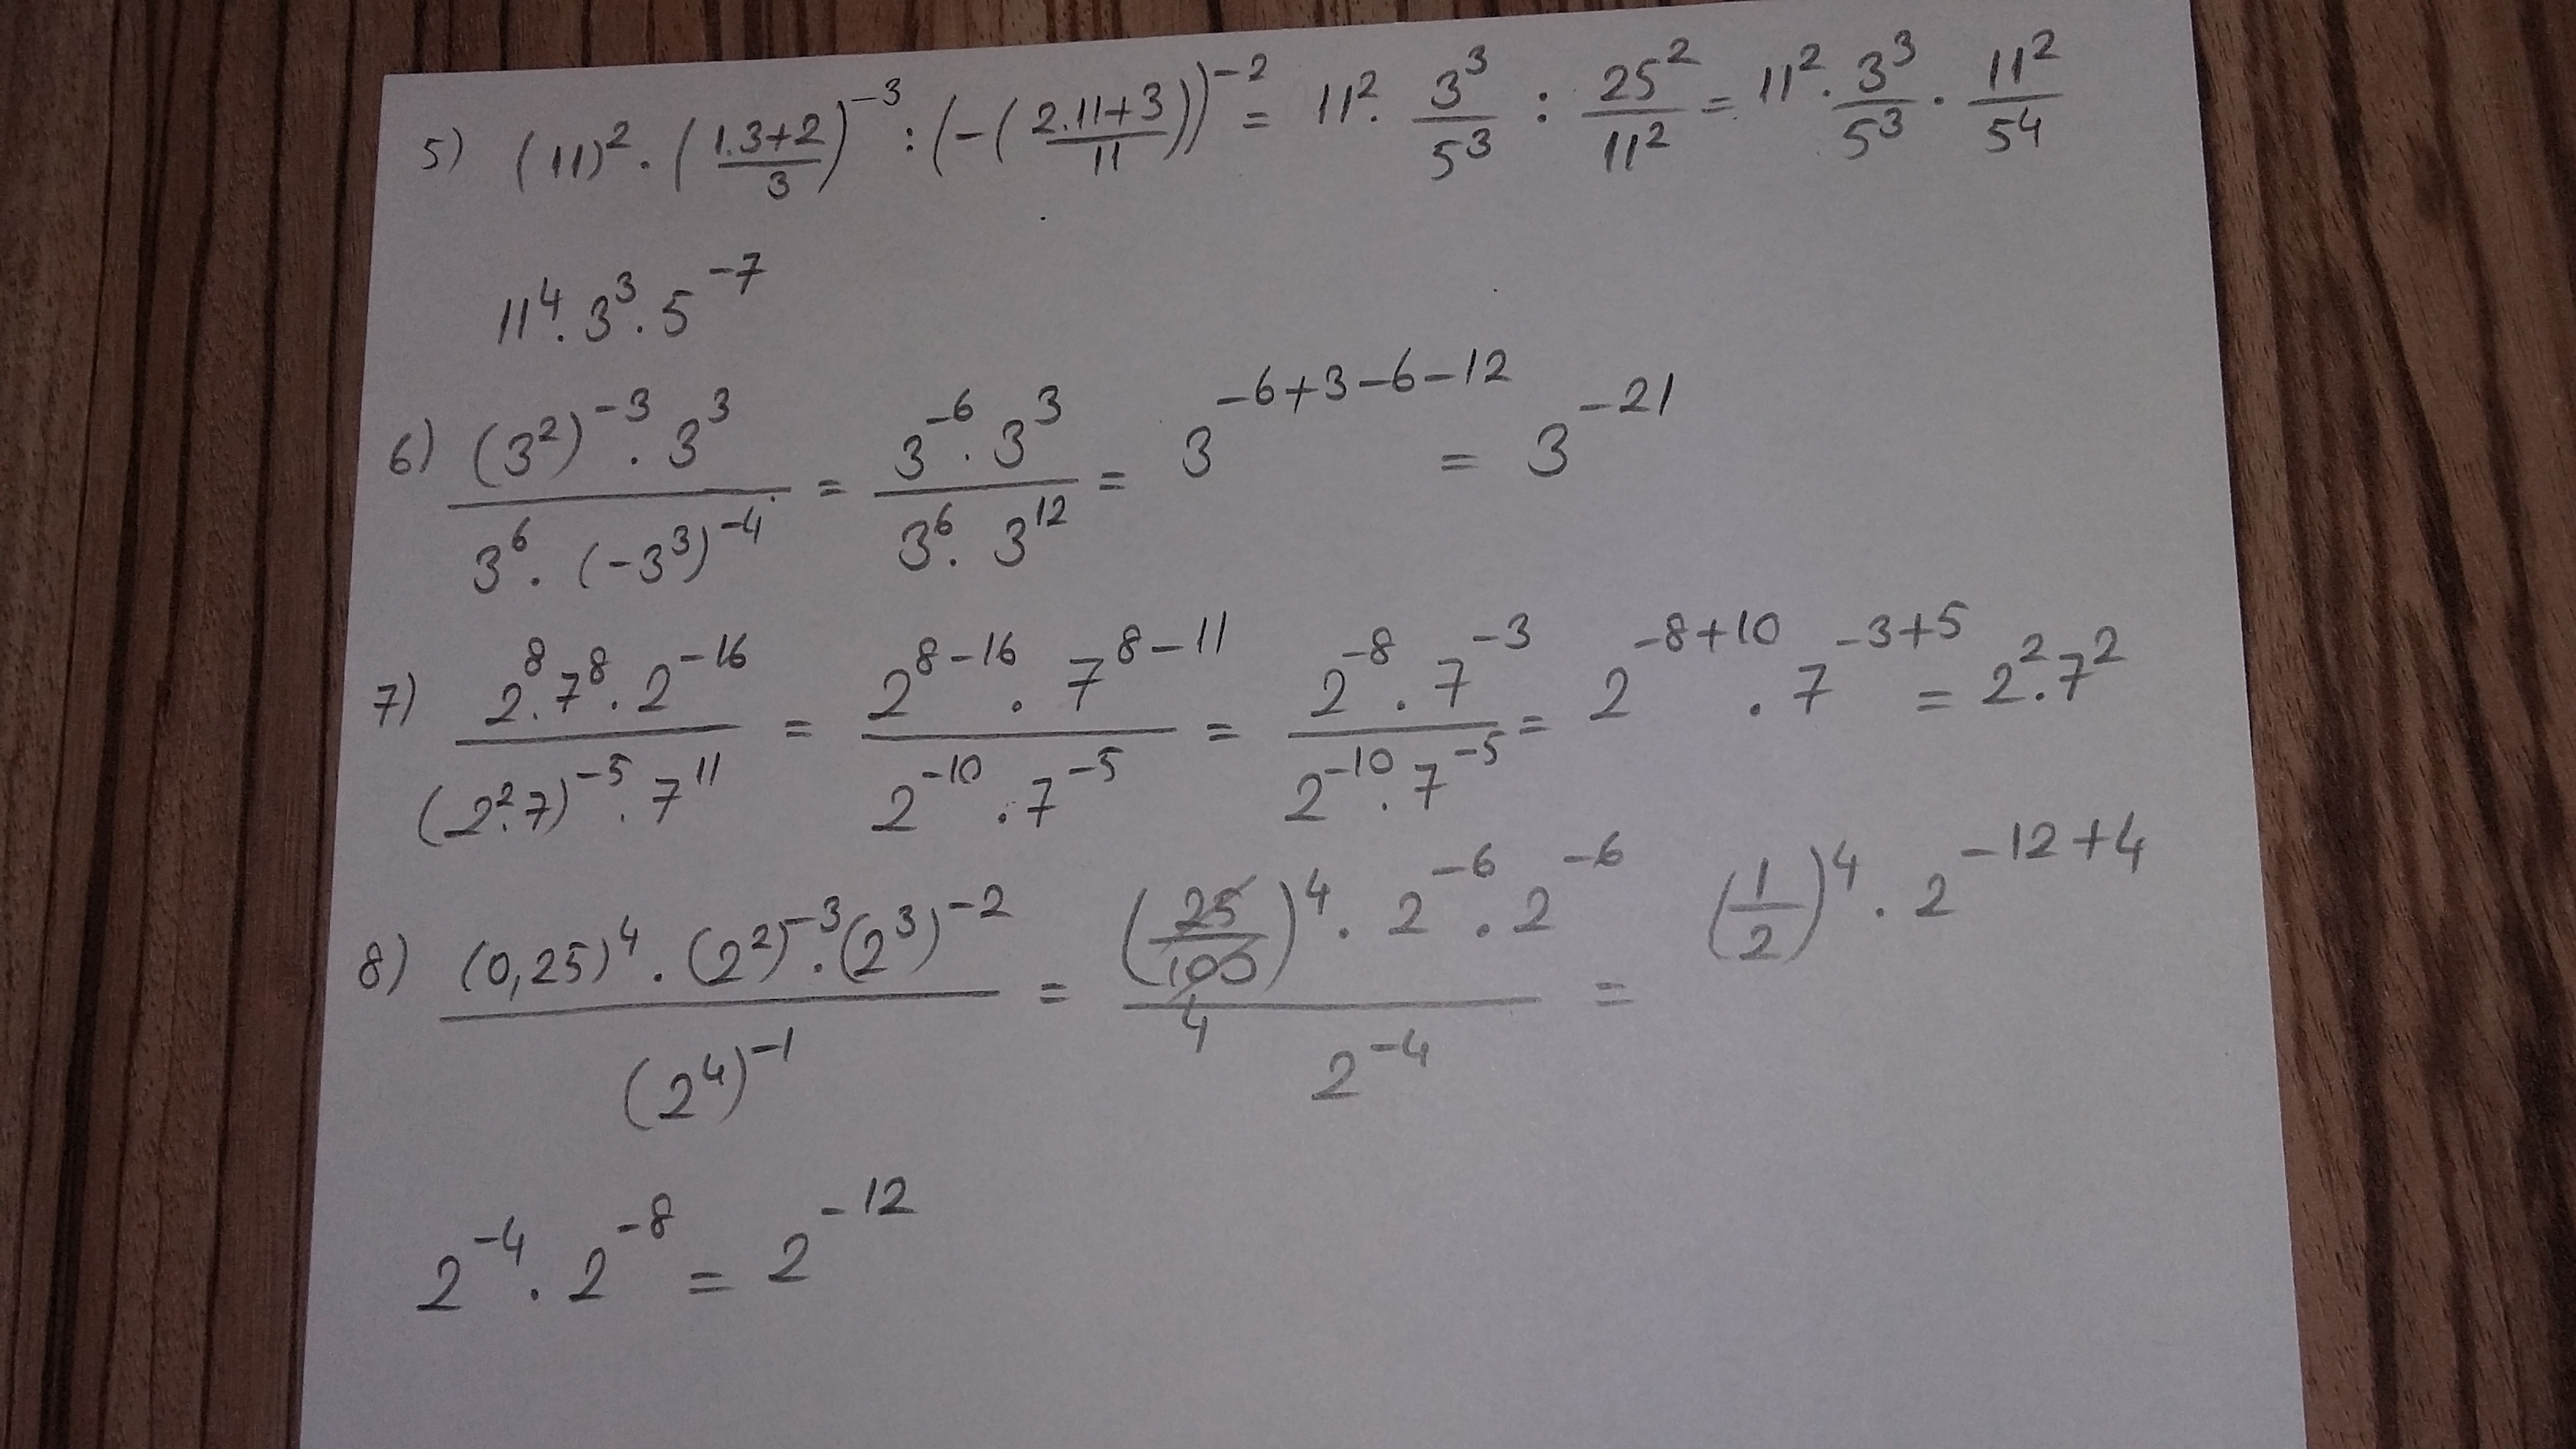 5) (11)² · ((1.3+2)/3)⁻³ : (-((2.11+3)/11))⁻² = 11² · 3³/5³ : 25²/11² = 11² · 3³/5³ · 11²/5⁴
11⁴ · 3³ · 5⁻⁷
6) ((3²)⁻³ · 3³)/(3⁶ · (-3³)⁻⁴) = (3⁻⁶ · 3³)/(3⁶ · 3¹²) = 3⁻⁶⁺³⁻⁶⁻¹² = 3⁻²¹
7) (2⁸ · 7⁸ · 2⁻¹⁶)/((2² · 7)⁻⁵ · 7¹¹) = (2⁸⁻¹⁶ · 7⁸⁻¹¹)/(2⁻¹⁰ · 7⁻⁵) = (2⁻⁸ · 7⁻³)/(2⁻¹⁰ · 7⁻⁵) = 2⁻⁸⁺¹⁰ · 7⁻³⁺⁵ = 2² · 7²
8) ((0,25)⁴ · (2²)⁻³ · (2³)⁻²)/((2⁴)⁻¹) = ((25/100 4)⁴ · 2⁻⁶ · 2⁻⁶)/(2⁻⁴) = (1/2)⁴ · 2⁻¹²⁺⁴
2⁻⁴ · 2⁻⁸ = 2⁻¹²